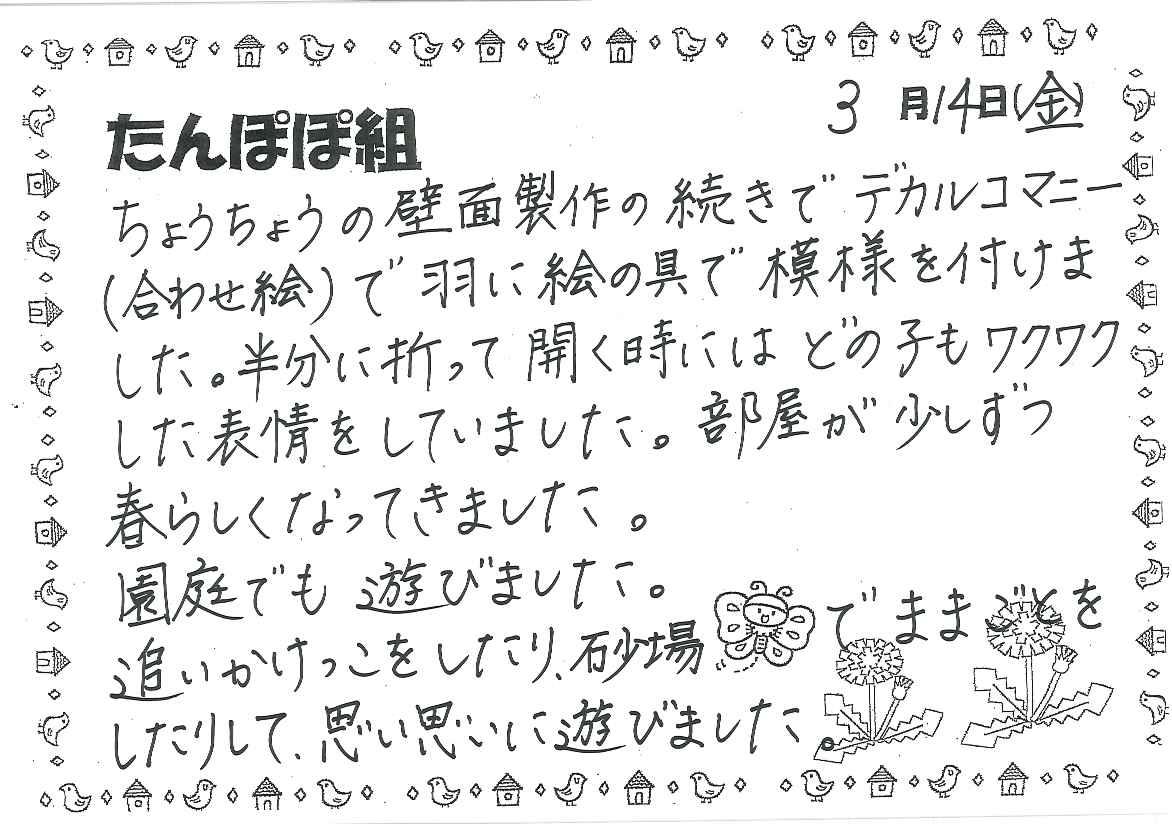 たんぽぽ組 3月14日(金)
ちょうちょうの壁面製作の続きでデカルコマニー
(合わせ絵)で羽に絵の具で模様を付けま
した。半分に折って開く時にはどの子もワクワク
した表情をしていました。部屋が少しずつ
春らしくなってきました。
園庭でも遊びました。
追いかけっこをしたり、砂場でままごとを
したりして、思い思いに遊びました。